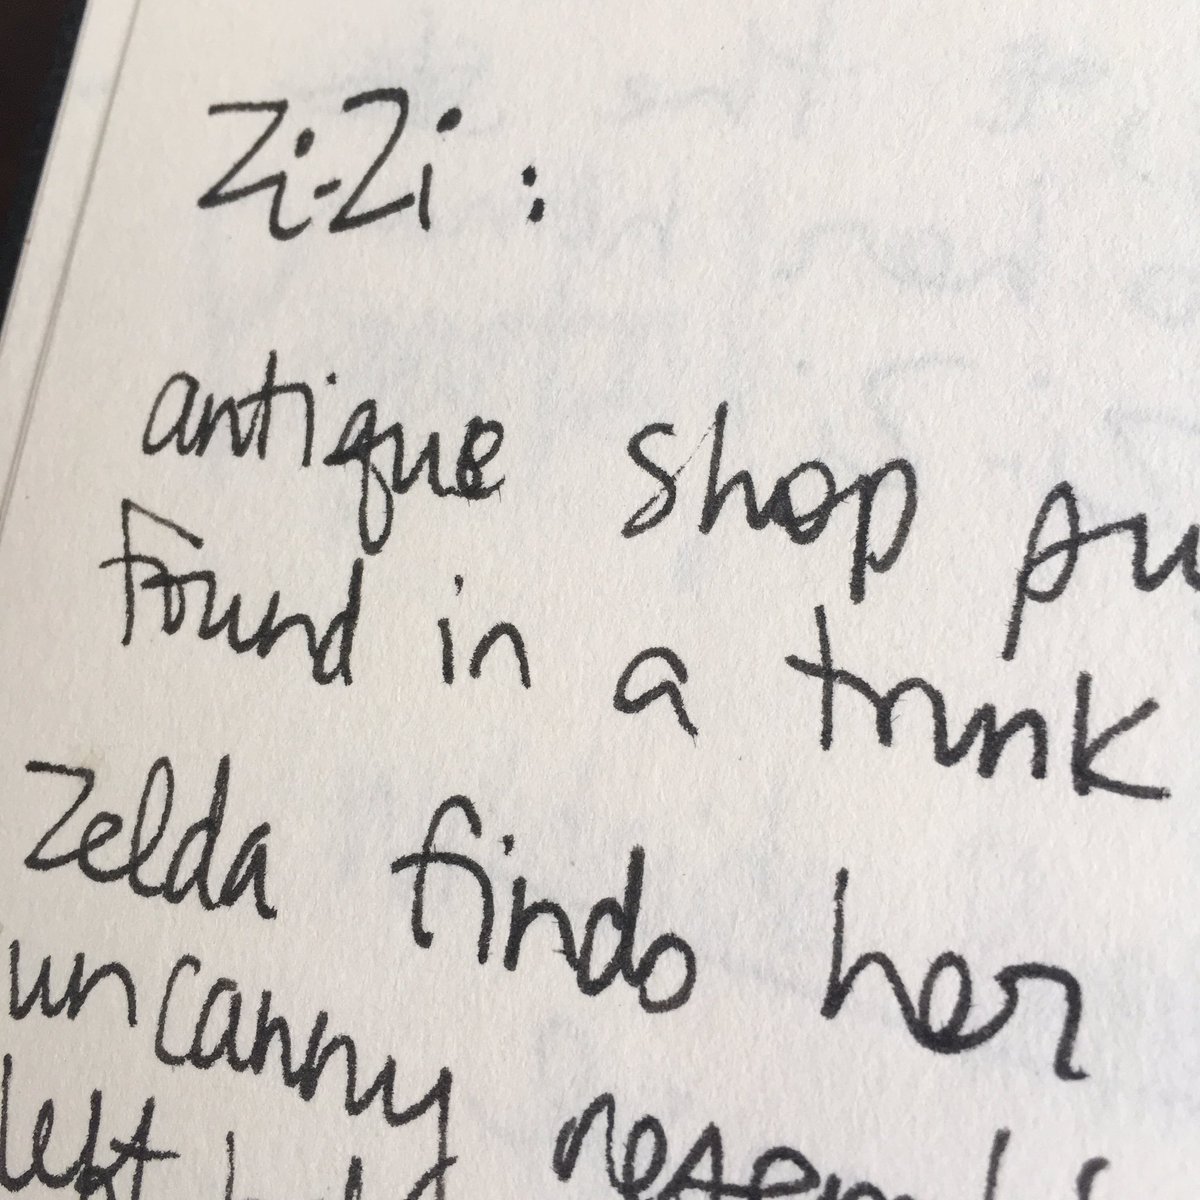 Zi-Zi:
antique shop pu
Found in a trunk
Zelda finds her
uncanny resembl
left